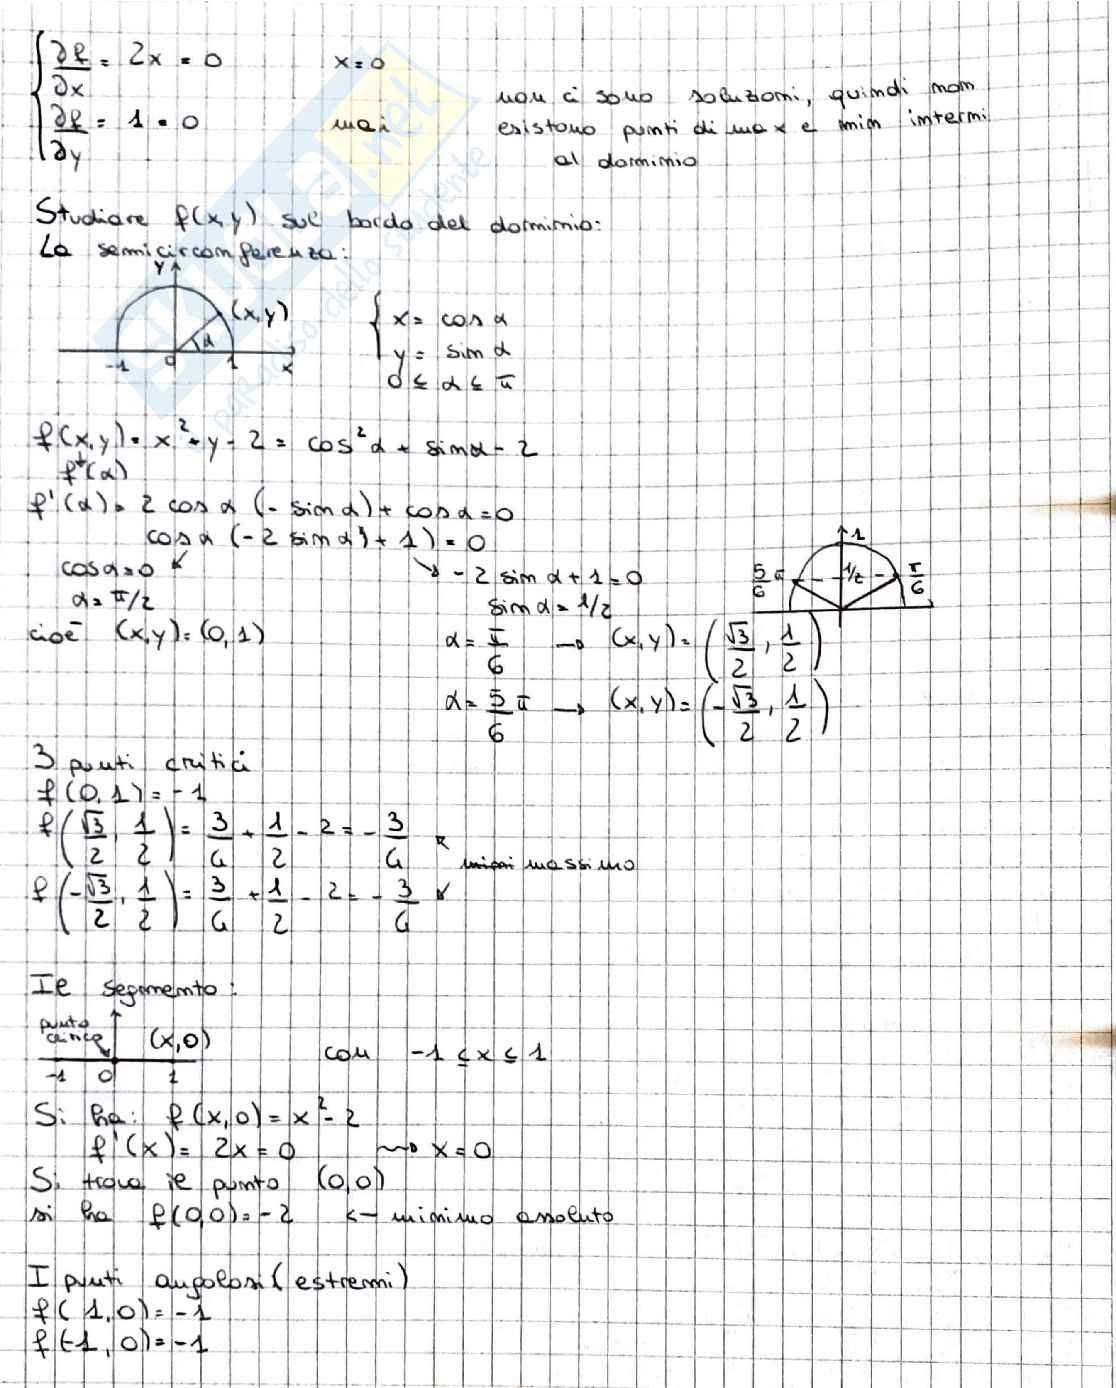 ∂f/∂x = 2x = 0    x = 0
∂f/∂y = 1 = 0    mai
non ci sono soluzioni, quindi non
esistono punti di max e min interni
al dominio
Studiare f(x,y) sul bordo del dominio:
La semicirconferenza:
y
(x,y)
α
-1 0 1 x
{ x = cos α
y = sin α
0 ≤ α ≤ π
f(x,y) = x² + y - 2 = cos²α + sinα - 2
f(α)
f'(α) = 2 cos α (- sin α) + cos α = 0
cos α (-2 sin α + 1) = 0
cos α = 0
α = π/2
cioè (x,y) = (0,1)
-2 sin α + 1 = 0
sin α = 1/2
α = π/6 → (x,y) = (√3/2, 1/2)
α = 5/6 π → (x,y) = (-√3/2, 1/2)
1
5/6 π 1/2 π/6
3 punti critici
f(0,1) = -1
f(√3/2, 1/2) = 3/4 + 1/2 - 2 = -3/4
massimo
f(-√3/2, 1/2) = 3/4 + 1/2 - 2 = -3/4
Il segmento:
punto
critico
(x,0)
-1 0 1
con -1 ≤ x ≤ 1
Si ha: f(x,0) = x² - 2
f'(x) = 2x = 0 ⇝ x = 0
Si trova il punto (0,0)
si ha f(0,0) = -2 ← minimo assoluto
I punti angolosi (estremi)
f(1,0) = -1
f(-1,0) = -1
SKUOLA.net
paradiso dello studente